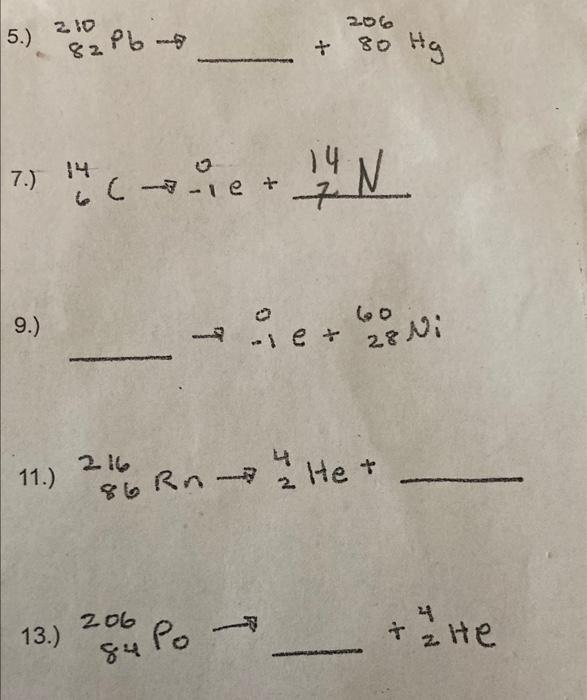 5.) ²¹⁰₈₂Pb → ______ + ²⁰⁶₈₀Hg
7.) ¹⁴₆C → ⁰₋₁e + ¹⁴₇N
9.) ______ → ⁰₋₁e + ⁶⁰₂₈Ni
11.) ²¹⁶₈₆Rn → ⁴₂He + ______
13.) ²⁰⁶₈₄Po → ______ + ⁴₂He